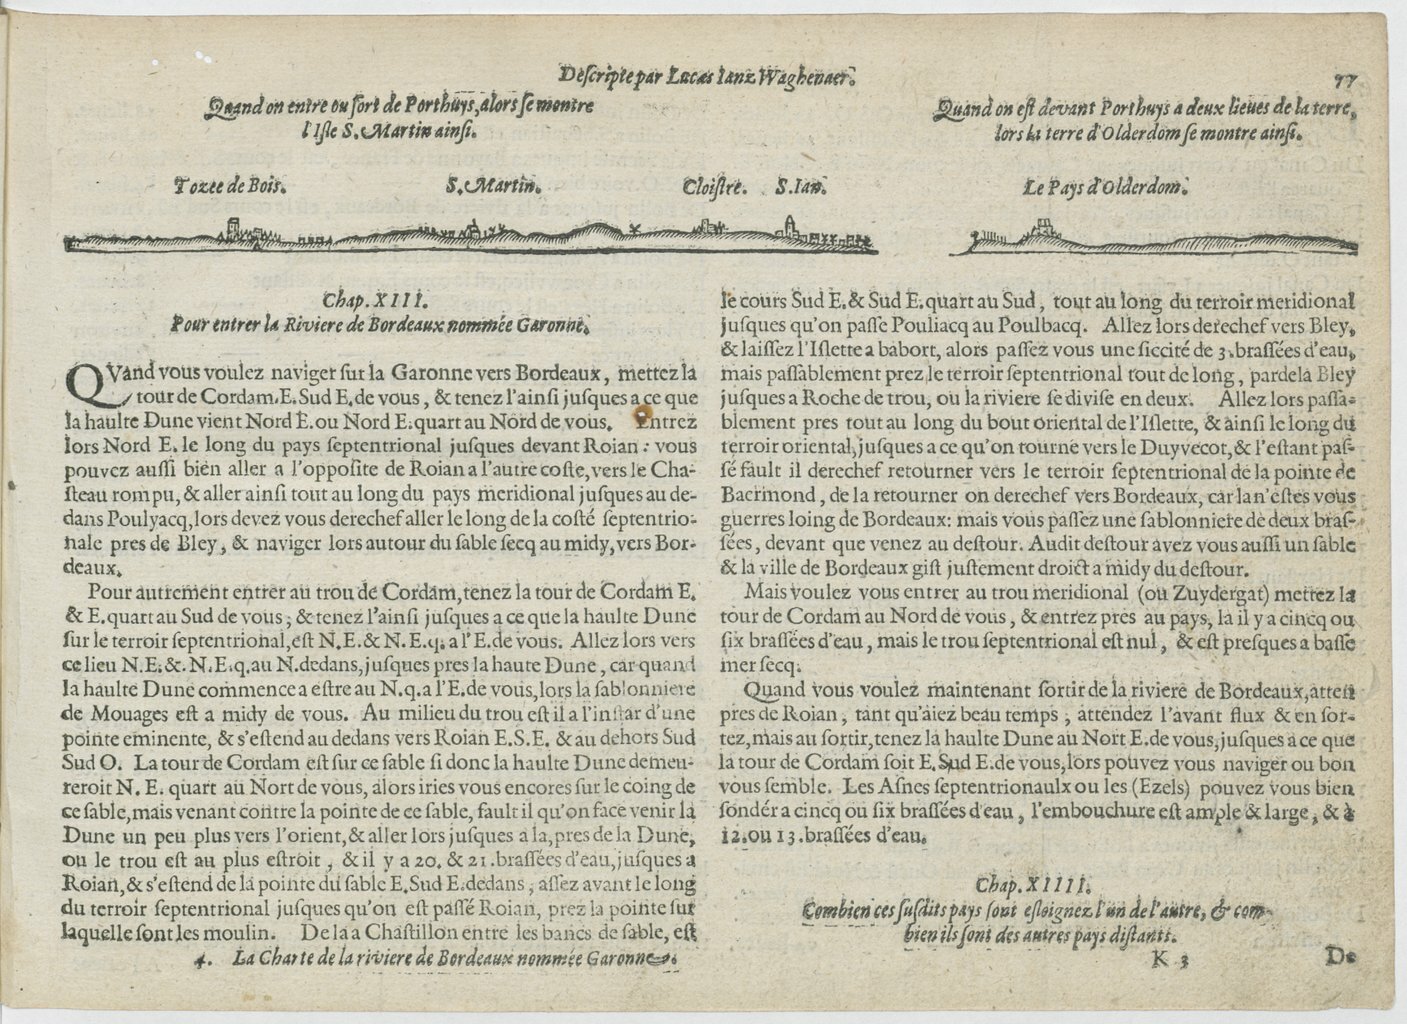 Descripte par Lucas Ianz Waghenaer.
77
Quand on entre ou sort de Porthuys, alors se montre
l'Isle S. Martin ainsi.
Tozee de Bois.
S. Martin.
Cloistre.
S. Ian.
Quand on est devant Porthuys a deux lieues de la terre,
lors la terre d'Olderdom se montre ainsi.
Le Pays d'Olderdom.
Chap. XIII.
Pour entrer la Riviere de Bordeaux nommée Garonne.
QVand vous voulez naviger sur la Garonne vers Bordeaux, mettez la
tour de Cordam. E. Sud E. de vous, & tenez l'ainsi jusques a ce que
la haulte Dune vient Nord E. ou Nord E. quart au Nord de vous. Entrez
lors Nord E. le long du pays septentrional jusques devant Roian: vous
pouvez aussi bien aller a l'opposite de Roian a l'autre coste, vers le Cha-
steau rompu, & aller ainsi tout au long du pays meridional jusques au de-
dans Poulyacq, lors devez vous derechef aller le long de la costé septentrio-
nale pres de Bley, & naviger lors autour du sable secq au midy, vers Bor-
deaux.
Pour autrement entrer au trou de Cordam, tenez la tour de Cordam E.
& E. quart au Sud de vous, & tenez l'ainsi jusques a ce que la haulte Dune
sur le terroir septentrional, est N. E. & N. E. q. a l'E. de vous. Allez lors vers
ce lieu N. E. &. N. E. q. au N. dedans, jusques pres la haute Dune, car quand
la haulte Dune commence a estre au N. q. a l'E. de vous, lors la sablonniere
de Mouages est a midy de vous. Au milieu du trou est il a l'instar d'une
pointe eminente, & s'estend au dedans vers Roian E. S. E. & au dehors Sud
Sud O. La tour de Cordam est sur ce sable si donc la haulte Dune demeu-
reroit N. E. quart au Nort de vous, alors iries vous encores sur le coing de
ce sable, mais venant contre la pointe de ce sable, fault il qu'on face venir la
Dune un peu plus vers l'orient, & aller lors jusques a la, pres de la Dune,
ou le trou est au plus estroit, & il y a 20. & 21. brassées d'eau, jusques a
Roian, & s'estend de la pointe du sable E. Sud E. dedans, assez avant le long
du terroir septentrional jusques qu'on est passé Roian, prez la pointe sur
laquelle sont les moulin. De la a Chastillon entre les bancs de sable, est
4. La Charte de la riviere de Bordeaux nommée Garonne.
le cours Sud E. & Sud E. quart au Sud, tout au long du terroir meridional
jusques qu'on passe Pouliacq au Poulbacq. Allez lors derechef vers Bley,
& laissez l'Islette a babort, alors passez vous une siccité de 3. brassées d'eau,
mais passablement prez le terroir septentrional tout de long, pardela Bley
jusques a Roche de trou, ou la riviere se divise en deux. Allez lors passa-
blement pres tout au long du bout oriental de l'Islette, & ainsi le long du
terroir oriental, jusques a ce qu'on tourne vers le Duyvecot, & l'estant pas-
sé fault il derechef retourner vers le terroir septentrional de la pointe de
Baermond, de la retourner on derechef vers Bordeaux, car la n'estes vous
guerres loing de Bordeaux: mais vous passez une sablonniere de deux bras-
sées, devant que venez au destour. Audit destour avez vous aussi un sable
& la ville de Bordeaux gist justement droict a midy du destour.
Mais voulez vous entrer au trou meridional (ou Zuydergat) mettez la
tour de Cordam au Nord de vous, & entrez pres au pays, la il y a cincq ou
six brassées d'eau, mais le trou septentrional est nul, & est presques a basse
mer secq.
Quand vous voulez maintenant sortir de la riviere de Bordeaux, atten
pres de Roian, tant qu'aiez beau temps, attendez l'avant flux & en sor-
tez, mais au sortir, tenez la haulte Dune au Nort E. de vous, jusques a ce que
la tour de Cordam soit E. Sud E. de vous, lors pouvez vous naviger ou bon
vous semble. Les Asnes septentrionaulx ou les (Ezels) pouvez vous bien
sondér a cincq ou six brassées d'eau, l'embouchure est ample & large, & a
12. ou 13. brassées d'eau.
Chap. XIIII.
Combien ces susdits pays sont esloignez l'un de l'autre, & com-
bien ils sont des autres pays distants.
K 3
De